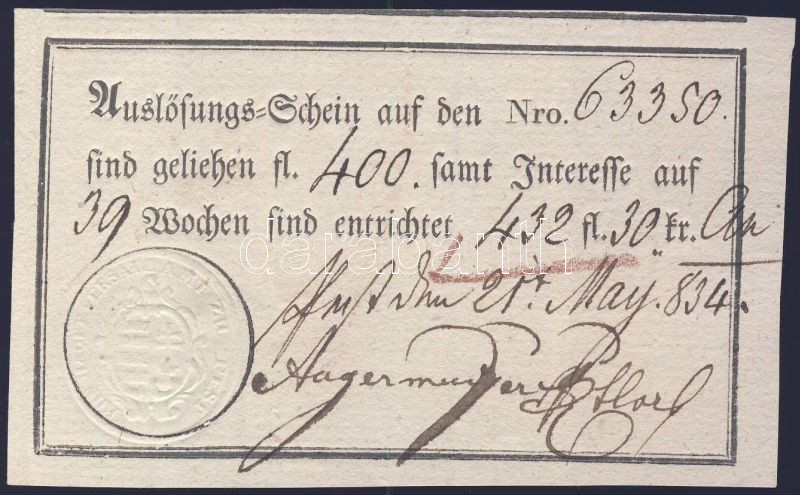 Auslösungs-Schein auf den Nro. 63350.
sind geliehen fl. 400. samt Interesse auf
39 Wochen sind entrichtet 432 fl. 30 kr. CM
Pest den 21t May. 834.
darabanth